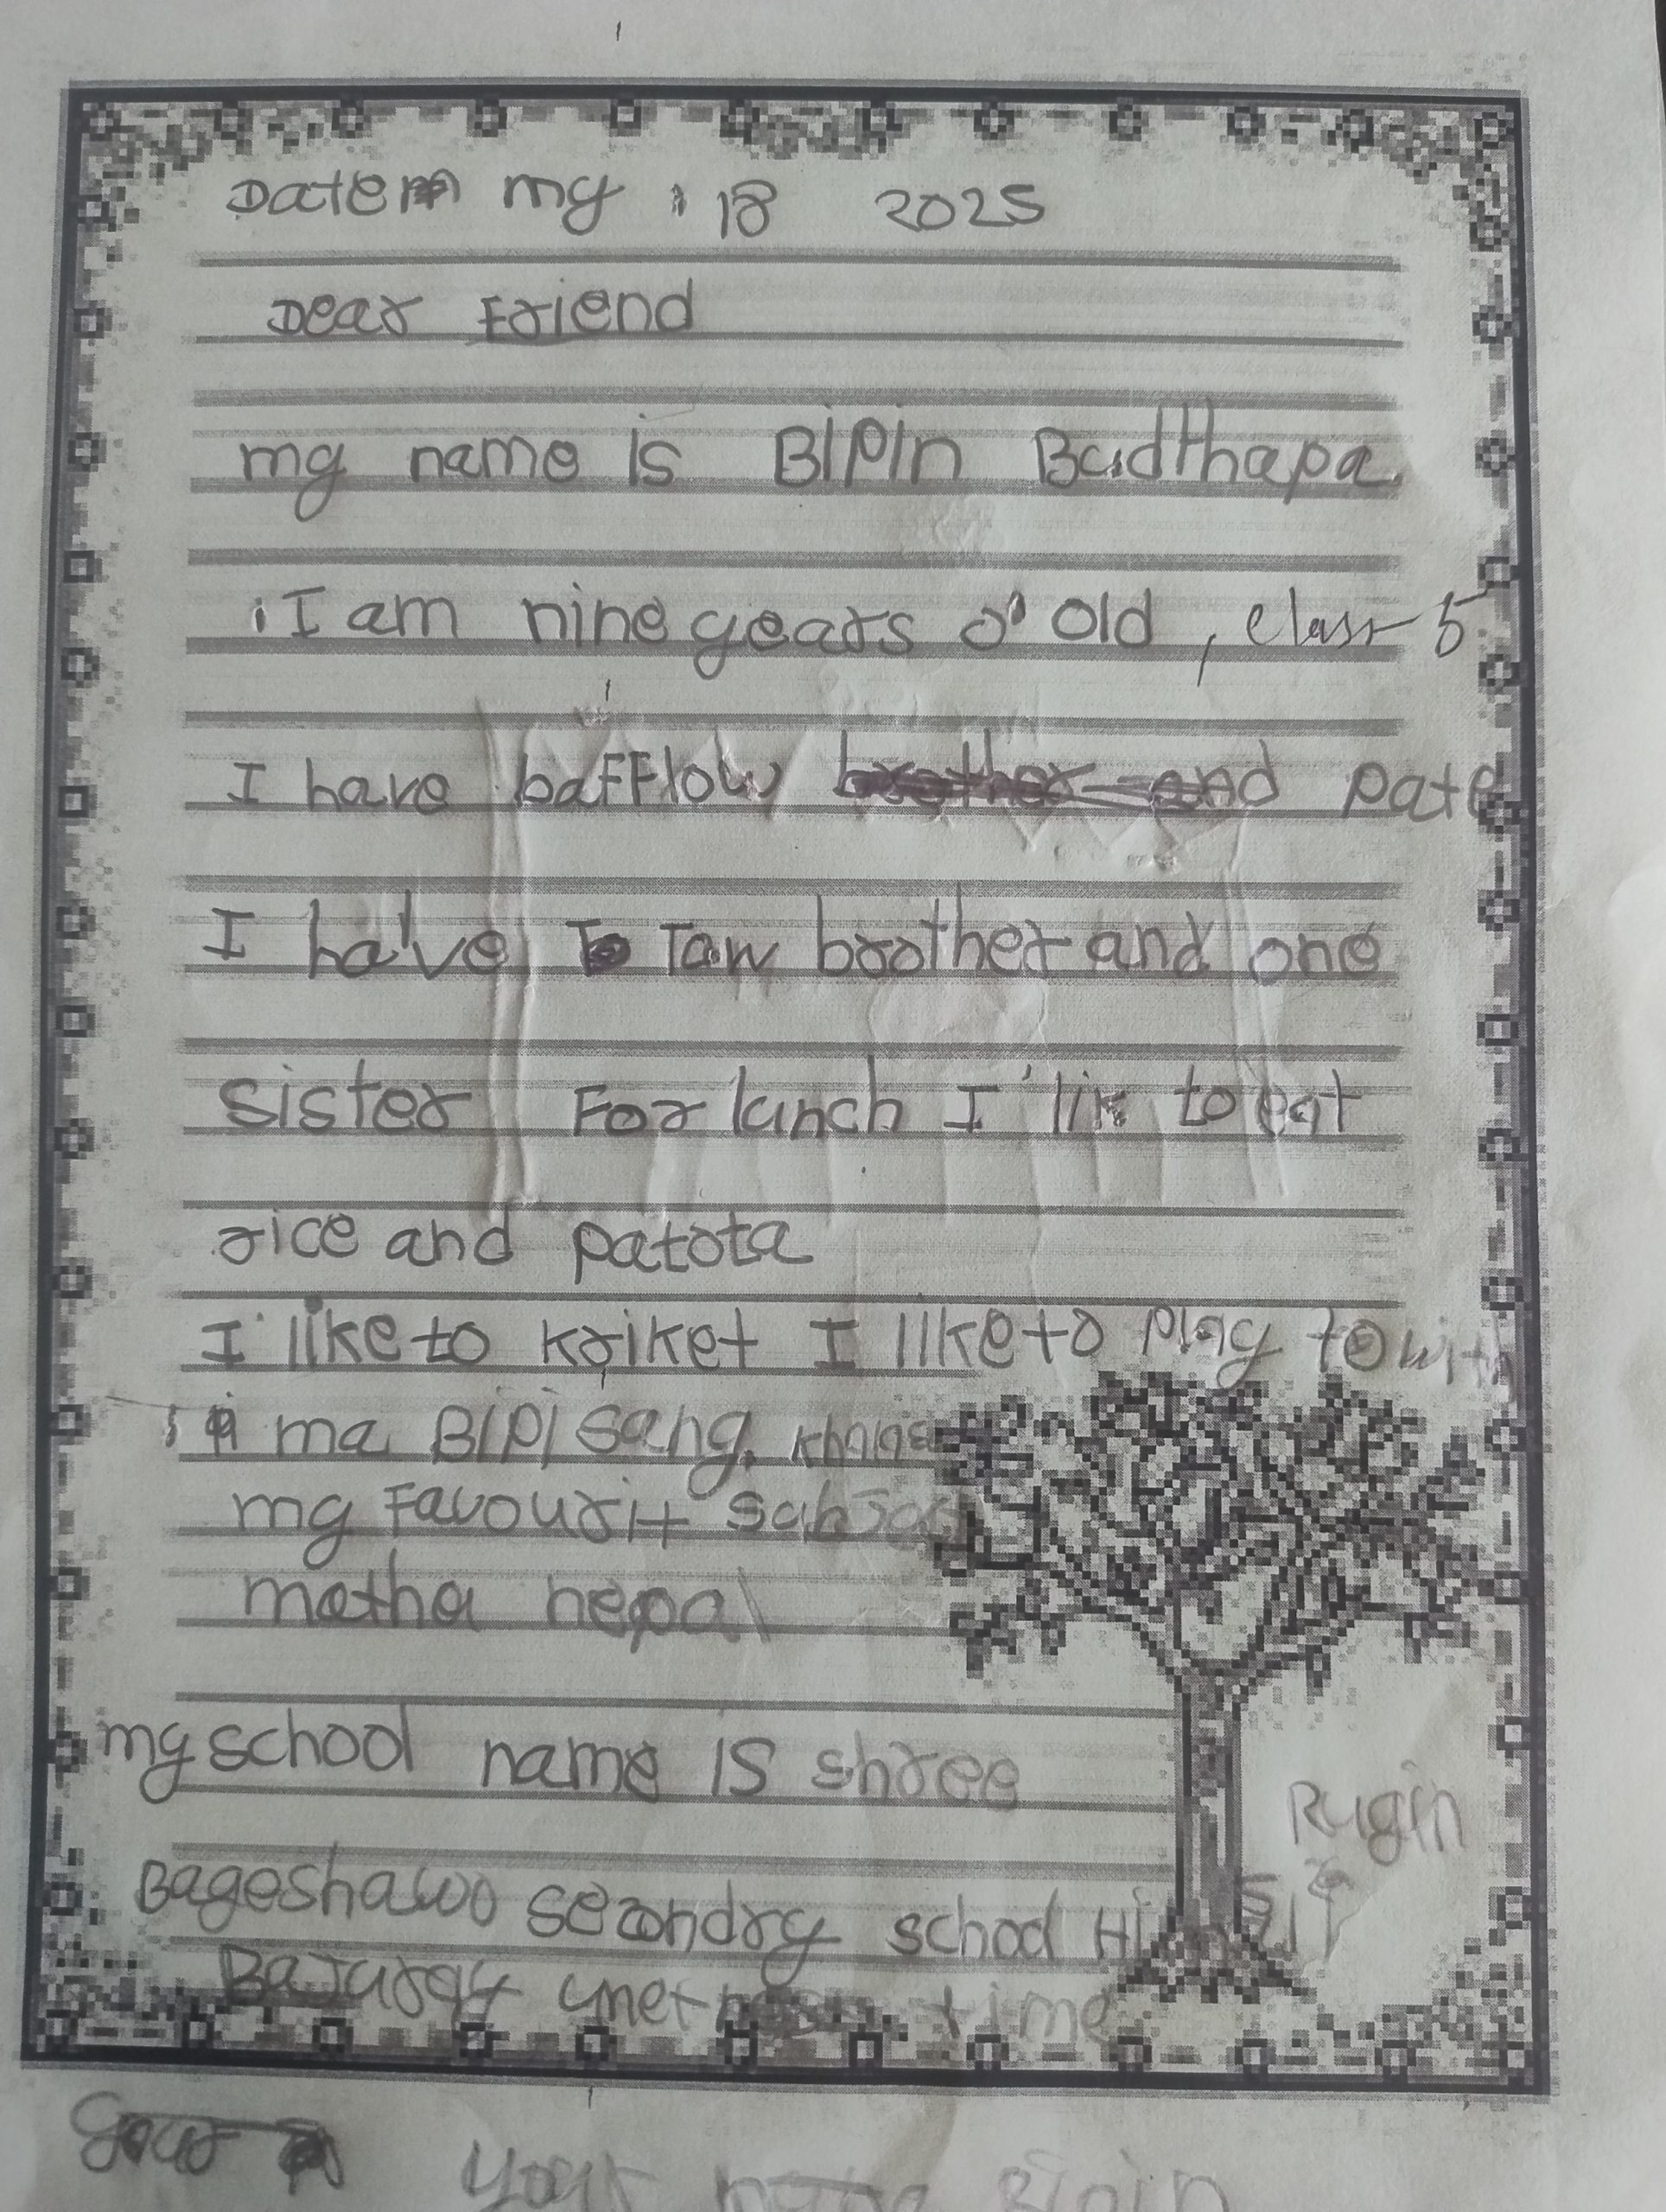 Date my 18 2025
Dear Friend
my name is BIPIn Budthapa
I am nine years o' old, class 5
I have bafflow and pate
I ha've Taw brother and one
sister For lunch I lik to eat
rice and patota
I like to kriket I like to play to with
ma BIPI sang.
my Favourit
matha nepal
my school name IS shree
Bageshawo secondry school
time
Rugin
your
your name Bipin